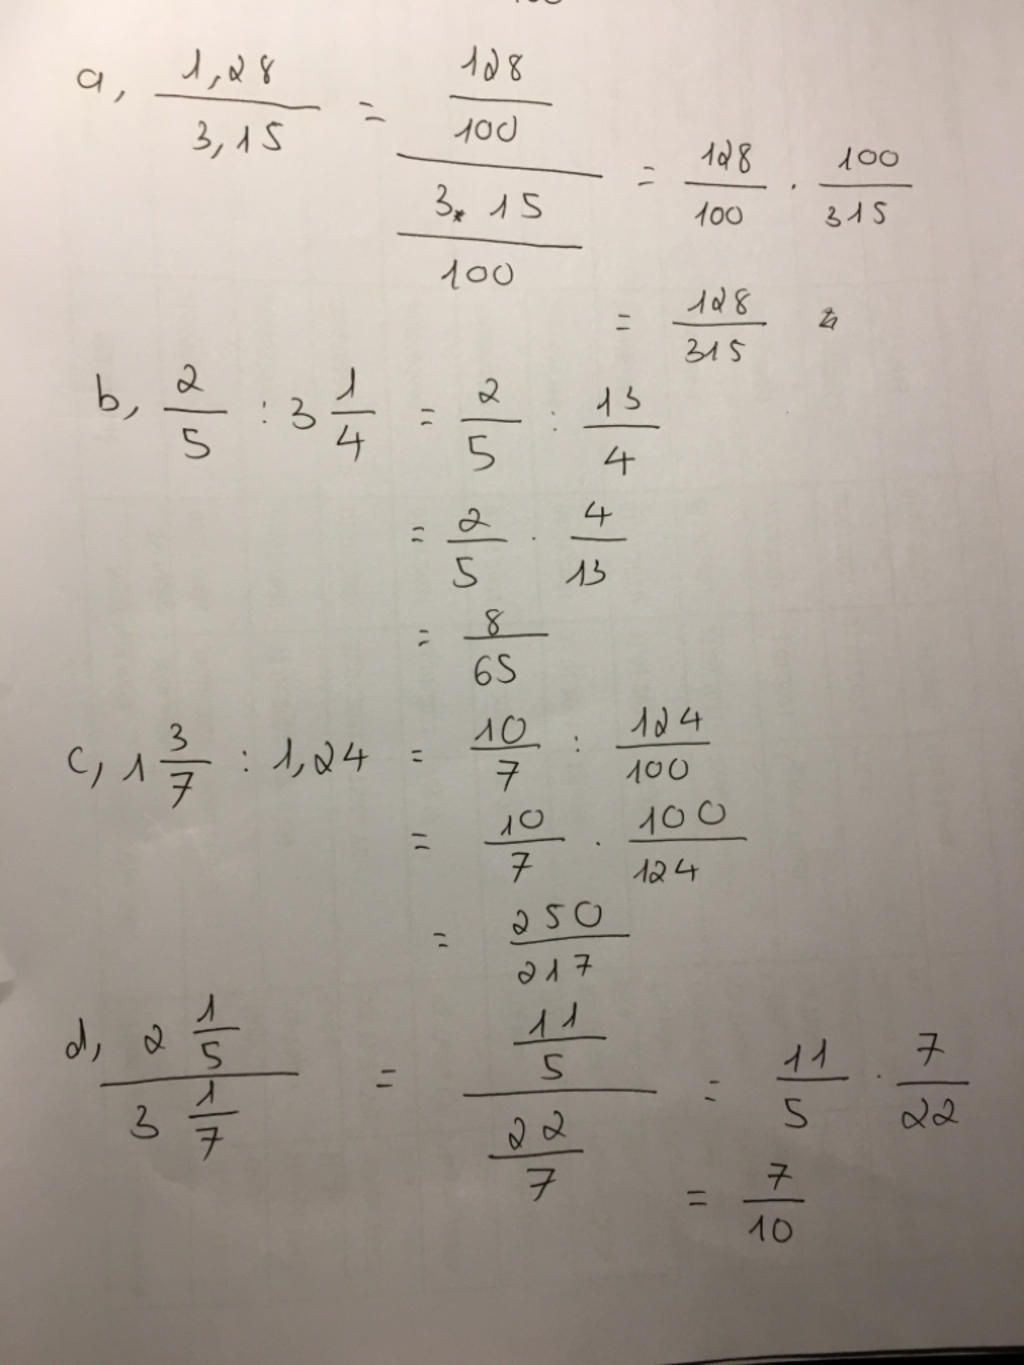 a, 1,28 / 3,15 = (128 / 100) / (3. 15 / 100) = 128 / 100 . 100 / 315
= 128 / 315
b, 2 / 5 : 3 1 / 4 = 2 / 5 : 13 / 4
= 2 / 5 . 4 / 13
= 8 / 65
c, 1 3 / 7 : 1,24 = 10 / 7 : 124 / 100
= 10 / 7 . 100 / 124
= 250 / 217
d, (2 1 / 5) / (3 1 / 7) = (11 / 5) / (22 / 7) = 11 / 5 . 7 / 22
= 7 / 10